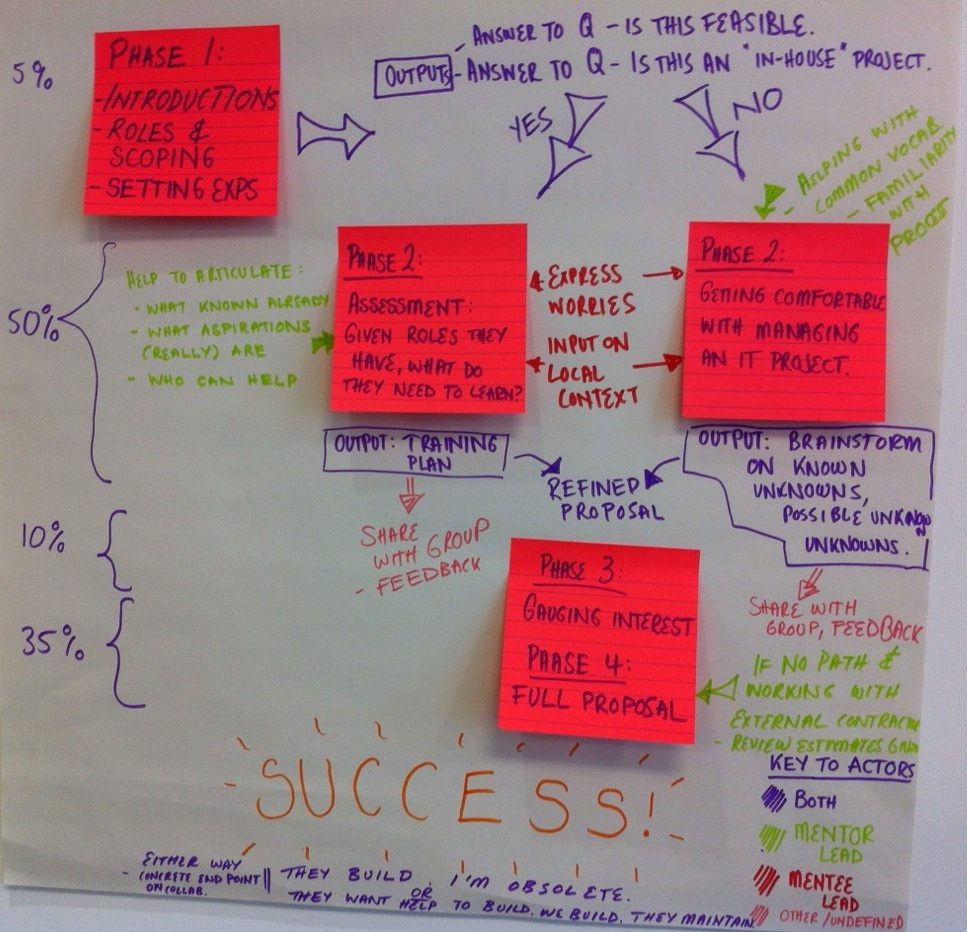 5%
PHASE 1:
-INTRODUCTIONS
- ROLES &
SCOPING
- SETTING EXPS
ANSWER TO Q - IS THIS FEASIBLE.
OUTPUTS - ANSWER TO Q - IS THIS AN "IN-HOUSE" PROJECT.
YES
NO
- HELPING WITH
COMMON VOCAB
- FAMILIARITY
WITH
50%
HELP TO ARTICULATE:
- WHAT KNOWN ALREADY
- WHAT ASPIRATIONS
(REALLY) ARE
- WHO CAN HELP
PHASE 2:
ASSESSMENT:
GIVEN ROLES THEY
HAVE, WHAT DO
THEY NEED TO LEARN?
EXPRESS
WORRIES
INPUT ON
LOCAL
CONTEXT
PHASE 2:
GETTING COMFORTABLE
WITH MANAGING
AN IT PROJECT.
OUTPUT: TRAINING
PLAN
SHARE
WITH GROUP
- FEEDBACK
REFINED
PROPOSAL
OUTPUT: BRAINSTORM
ON KNOWN
UNKNOWNS,
POSSIBLE UNKNOWN
UNKNOWNS.
SHARE WITH
GROUP, FEEDBACK
10%
35%
PHASE 3:
GAUGING INTEREST
PHASE 4:
FULL PROPOSAL
IF NO PATH &
WORKING WITH
EXTERNAL
- REVIEW ESTIMATES
SUCCESS!
EITHER WAY
- CONCRETE END POINT
ON COLLAB.
THEY BUILD. I'M OBSOLETE.
OR
THEY WANT HELP TO BUILD. WE BUILD. THEY MAINTAIN.
KEY TO ACTORS
BOTH
MENTOR
LEAD
MENTEE
LEAD
OTHER/UNDEFINED